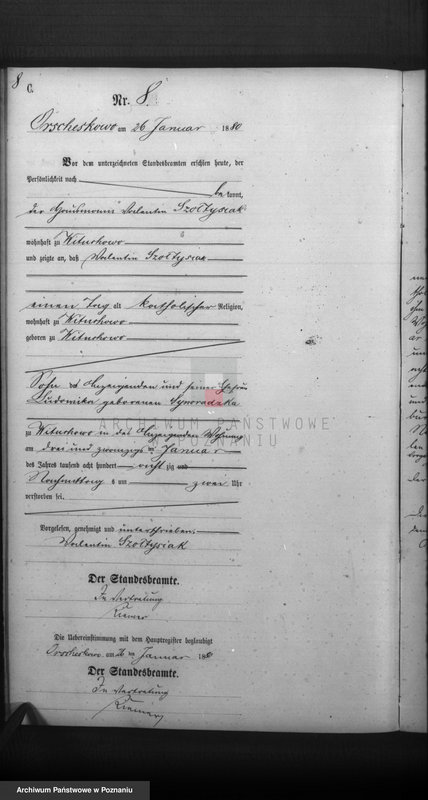 8
C.
Nr. 8.
Orscheskowo am 26 Januar 1880
Vor dem unterzeichneten Standesbeamten erschien heute, der
Persönlichkeit nach
be kannt,
der Valentin Szoltysiak
wohnhaft zu Wituchowo
und zeigte an, daß Valentin Szoltysiak
einen Tag alt katholischer Religion,
wohnhaft zu Wituchowo
geboren zu Wituchowo
Sohn des Anzeigenden und seiner Ehefrau
Ludowika geborenen
zu Wituchowo in des Anzeigenden Wohnung
am drei und zwanzigsten Januar
des Jahres tausend acht hundert acht zig und
Nachmittag s um zwei Uhr
verstorben sei.
Vorgelesen, genehmigt und unterschrieben.
Valentin Szoltysiak
Der Standesbeamte.
In Vertretung
Die Uebereinstimmung mit dem Hauptregister beglaubigt
Orscheskowo am 26 ten Januar 1880
Der Standesbeamte.
In Vertretung
ARCHIWUM PAŃSTWOWE
W POZNANIU
Archiwum Państwowe w Poznaniu